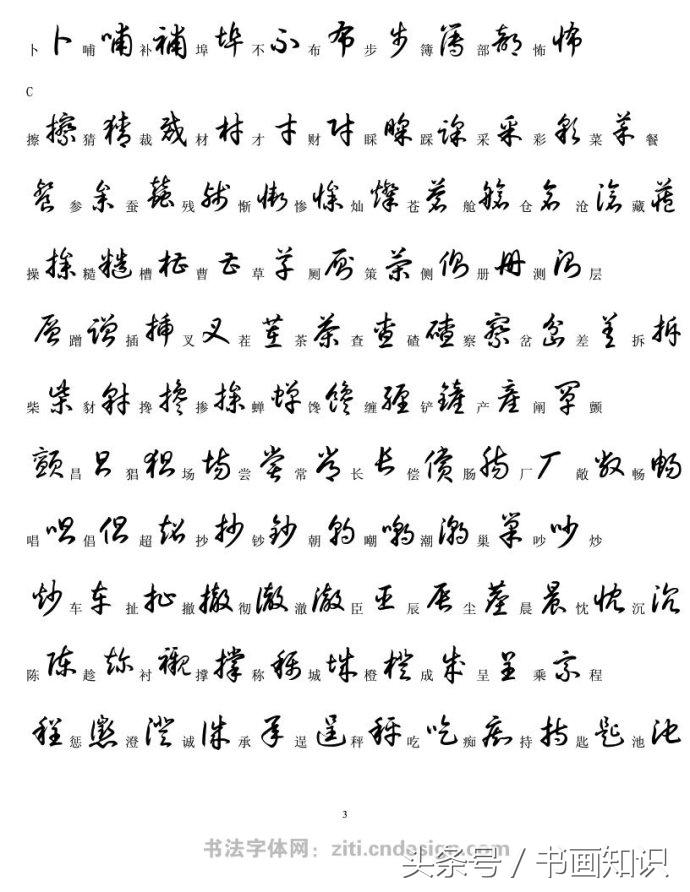 卜卜哺哺补補埠埠不不布布步步簿簿部部怖怖
C
擦擦猜猜裁裁材材才才财財睬睬踩踩采采彩彩菜菜餐
餐参參蚕蠶残殘惭慚惨慘灿燦苍蒼舱艙仓倉沧滄藏藏
操操糙糙槽槽曹曹草草厕廁策策侧側册冊测測层
層蹭蹭插插叉叉茬茬茶茶查查碴碴察察岔岔差差拆拆
柴柴豺豺搀攙掺摻蝉蟬馋饞缠纏铲鏟产產阐闡颤
顫昌昌猖猖场場尝嘗常常长長偿償肠腸厂厂敞敞畅暢
唱唱倡倡超超抄抄钞鈔朝朝嘲嘲潮潮巢巢吵吵炒
炒车車扯扯撤撤彻徹澈澈臣臣辰辰尘塵晨晨忱忱沉沉
陈陳趁趁衬襯撑撐称稱城城橙橙成成呈呈乘乘程
程惩懲澄澄诚誠承承逞逞秤秤吃吃痴痴持持匙匙池池
3
书法字体网：ziti.cndesign.com
头条号 / 书画知识